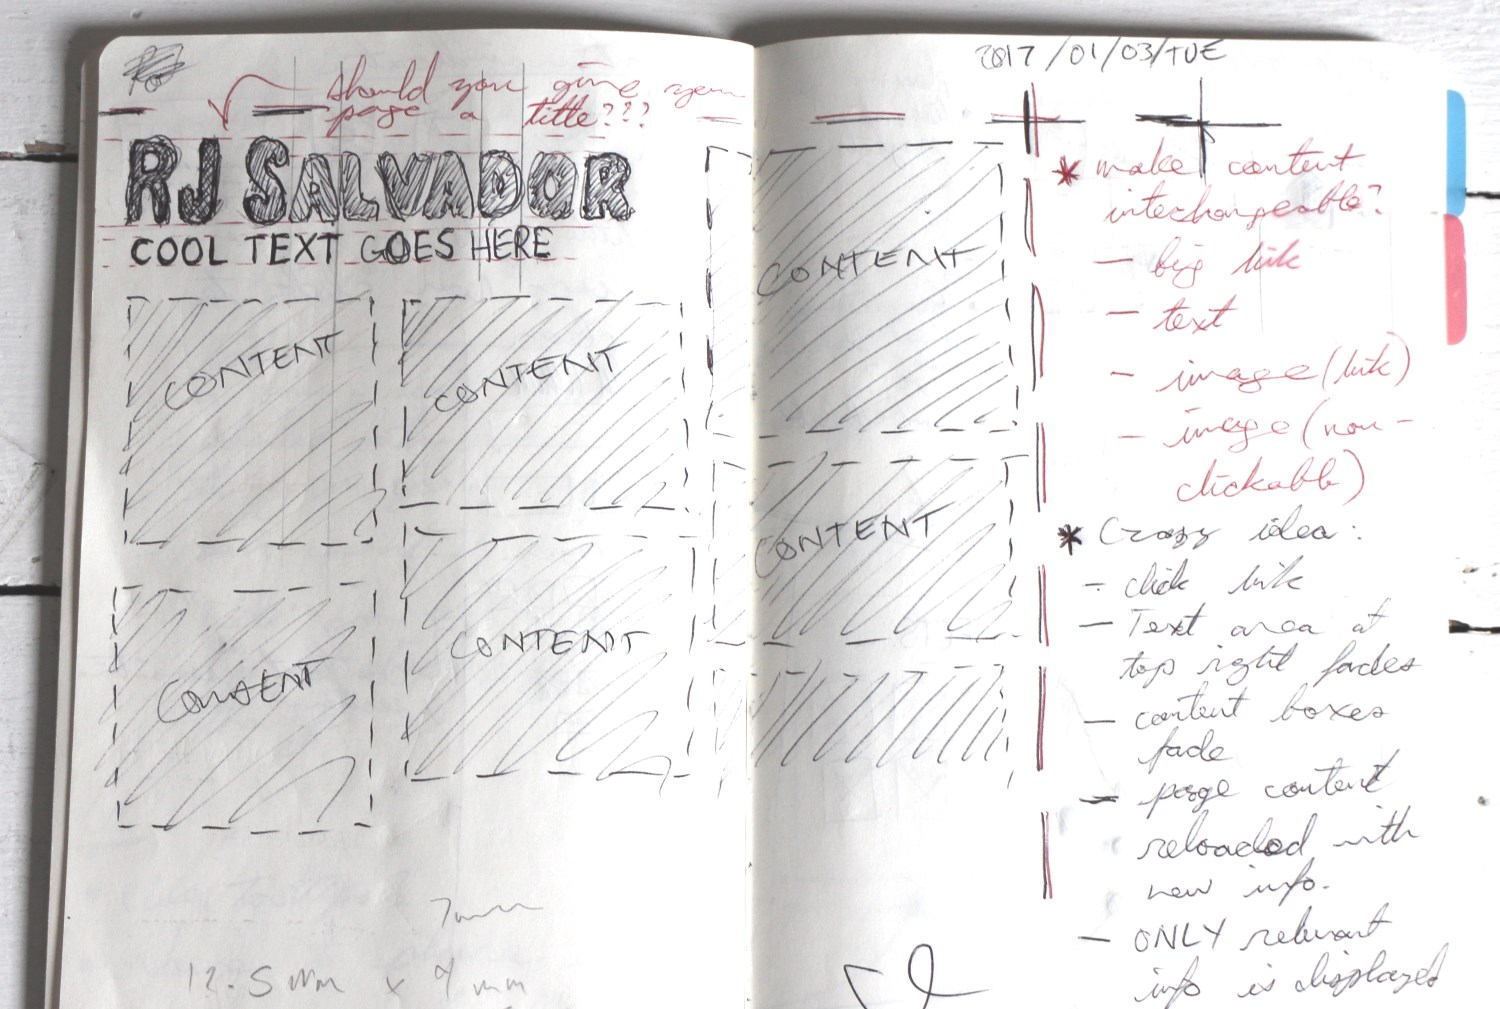 should you give your
page a title???
RJ SALVADOR
COOL TEXT GOES HERE
CONTENT
CONTENT
CONTENT
CONTENT
7mm
12.5mm x 9mm
2017/01/03/TUE
CONTENT
CONTENT
* make content
interchangeable?
- big link
- text
- image (link)
- image (non-
clickable)
* Crazy idea:
- click link
- Text area at
top right fades
- content boxes
fade
- page content
reloaded with
new info.
- ONLY relevant
info is displayed